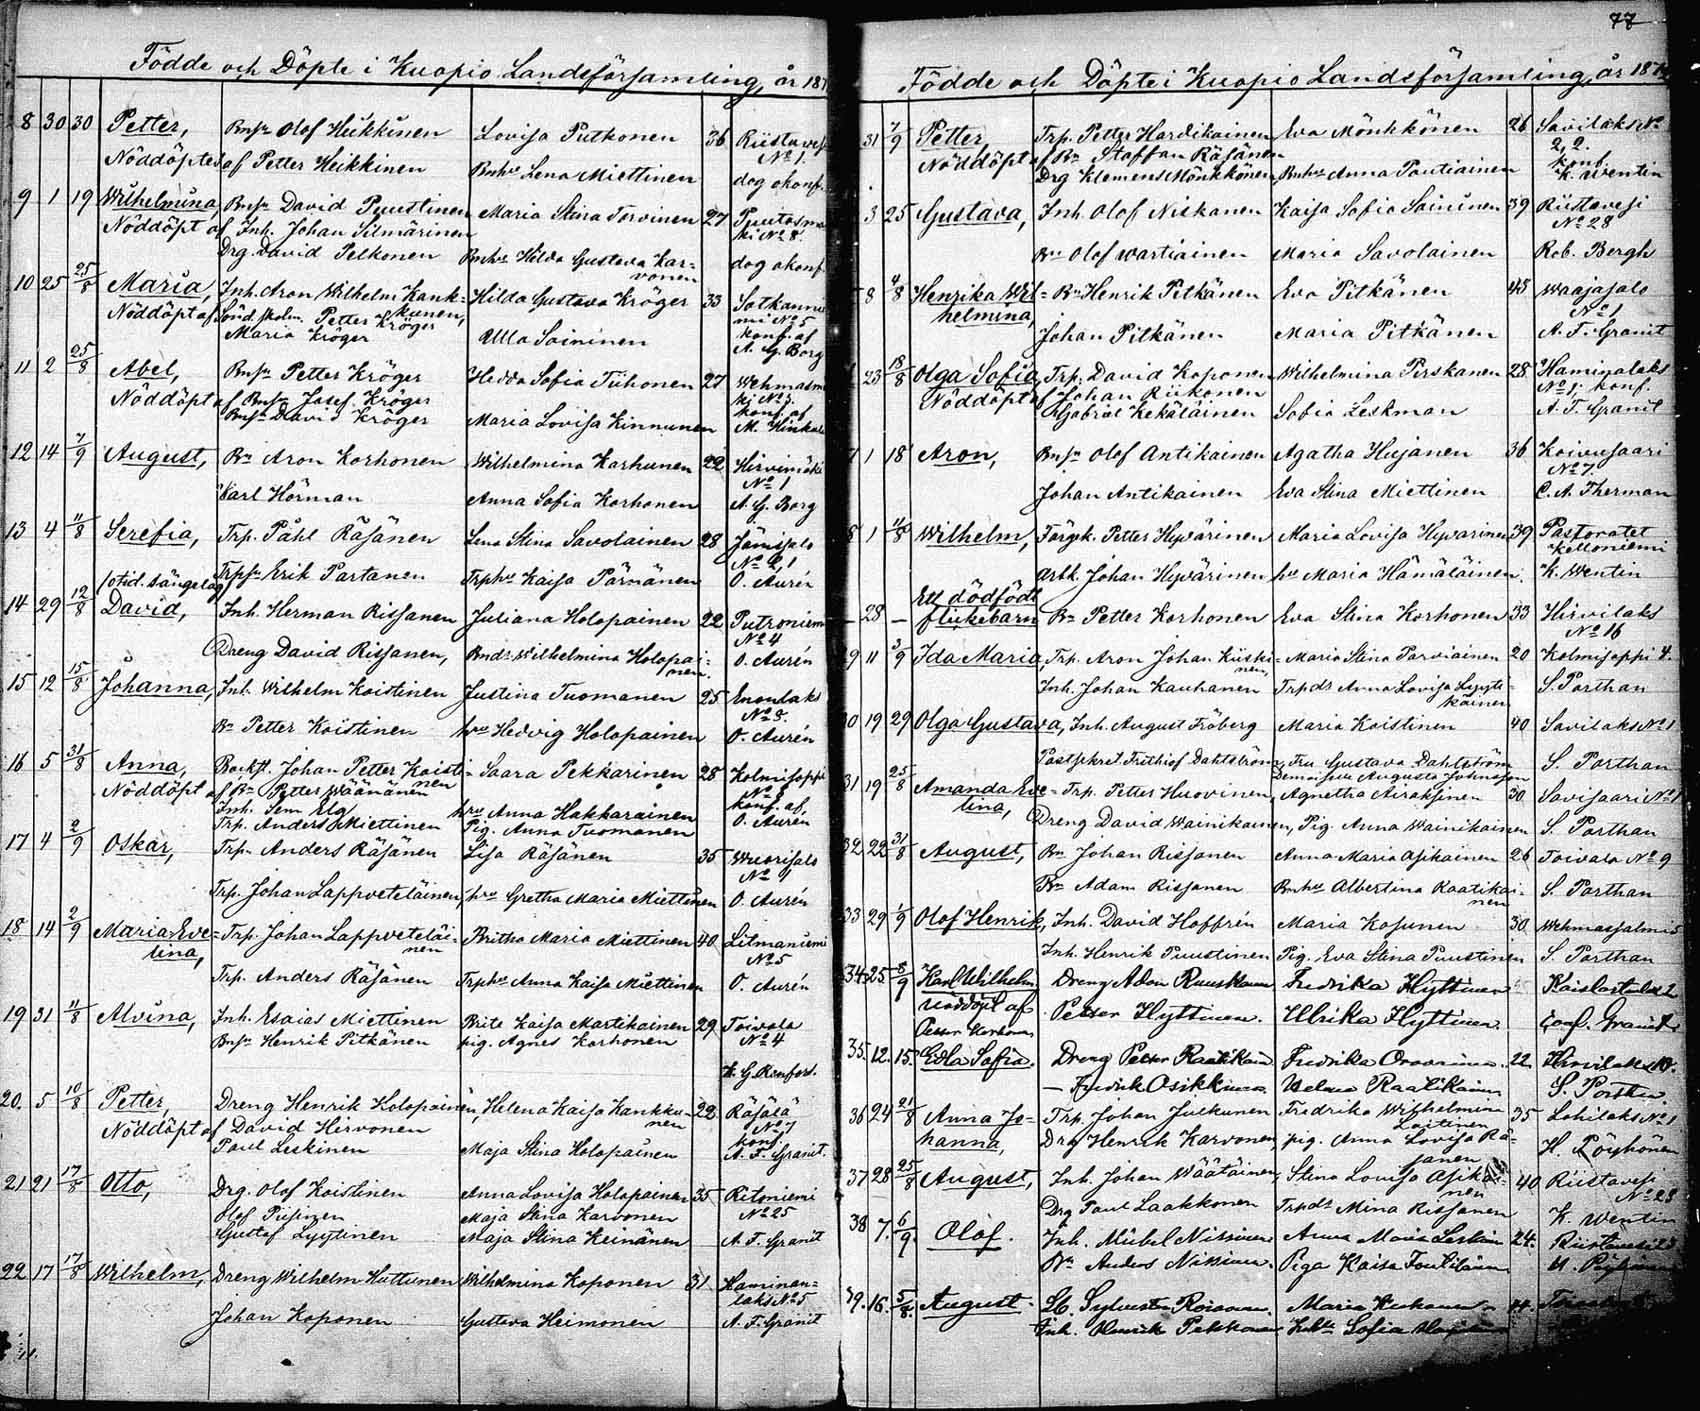 Födde och Döpte i Kuopio Landsförsamling, år 187
8 30 30 Petter, Bnsn Olof Heikkinen Lovisa Putkonen 36 Riistaves
Nöddöpt af Petter Heikkinen Bnhu Lena Miettinen No 1.
dog okonf.
9 1 19 Wilhelmina Bnsn David Puustinen Maria Stina Torvinen 27 Puutosmä
Nöddöpt af Inh. Johan Silmärinen ki No 8.
Drg David Pelkonen Bnhu Hilda Gustava Kar=
vonen dog okonf.
10 25 25/8 Maria, Inh. Aron Wilhelm Kank= Hilda Gustava Kröger 33 Jatkannie
kunen, mi No 5
Nöddöpt af Petter Kröger konf. af
Maria Kröger Ulla Soininen A. G. Borg
11 2 25/8 Abel, Bnsn Petter Kröger Hedda Sofia Tiihonen 27 Wehmasmä
Nöddöpt af Bnsn Josef Kröger ki No 7.
Bnsn David Kröger Maria Lovisa Kinnunen konf. af
M. Hinkula
12 14 7/9 August, Bn Aron Korhonen Wilhelmina Karhunen 22 Hirvimäki
No 1
Karl Hörman Anna Sofia Korhonen A. G. Borg
13 4 11/8 Serefia, Trp. Påhl Räsänen Lena Stina Savolainen 28 Jännisalo
No 2,1
otid. sängelag Trpsn Erik Partanen Trphu Kaisa Pärnänen O. Aurén
14 29 12/8 David, Inh. Herman Rissanen Juliana Holopainen 22 Putroniemi
No 4
Dreng David Rissanen, Bndr Wilhelmina Holopai=
nen O. Aurén
15 12 15/8 Johanna, Inh. Wilhelm Koistinen Justina Tuomanen 25 Enonlaks
No 3.
Bn Petter Koistinen hru Hedvig Holopainen O. Aurén
16 5 31/8 Anna, Backst. Johan Petter Koisti= Saara Pekkarinen 28 Kolmisoppi
nen No 8
Nöddöpt af Bn Petter Wäänänen konf. af
Inh. Sem Elg hru Anna Hakkarainen O. Aurén
Trp. Anders Miettinen Pig. Anna Tuomanen
17 4 2/9 Oskar, Trp. Anders Räsänen Lisa Räsänen 35 Wuorisalo
No 1
Trp. Johan Lappveteläinen, hru Gretha Maria Miettinen O. Aurén
18 14 2/9 Maria Eve= Trp. Johan Lappveteläi= Britha Maria Miettinen 40 Litmaniemi
lina, nen No 5
Trp. Anders Räsänen Trphu Anna Kaisa Miettinen O. Aurén
19 31 11/8 Alvina, Inh. Esaias Miettinen Brita Kaisa Martikainen 29 Toivala
Bnsn Henrik Pitkänen pig. Agnes Korhonen No 4
K. G. Renfors.
20. 5 10/8 Petter, Dreng Henrik Holopainen, Helena Kaisa Kankku= 22 Räsälä
nen No 7
Nöddöpt af David Hirvonen konf.
Paul Leskinen Maja Stina Holopainen A. F. Granit.
21 21 17/8 Otto, Drg. Olof Koistinen Anna Lovisa Holopainen 35 Ritoniemi
Olof Piipinen Maja Stina Karvonen No 25
Gustaf Lyytinen Maja Stina Keinänen A. F. Granit
22 17 17/8 Wilhelm, Dreng Wilhelm Huttunen Wilhelmina Koponen 31 Haminan=
laks No 5
Johan Koponen Gustava Heimonen A. F. Granit
77
Födde och Döpte i Kuopio Landsförsamling, år 187
31 7/9 Petter, Trp. Petter Hardikainen Eva Mönkkönen 26 Savilaks No
Nöddöpt af Bn Staffan Räsänen 2, 2.
konf.
Drg Klemens Mönkkönen Bnhu Anna Pautiainen K. Wentin
3 25 Gustava, Inh. Olof Niskanen Kaisa Sofia Soininen 39 Riistavesi
No 28
Bn Olof Wartiainen Maria Savolainen Rob. Bergh
8 4/8 Henrika Wil= Bn Henrik Pitkänen Eva Pitkänen 45 Waajasalo
helmina, No 1
Johan Pitkänen Maria Pitkänen A. F. Granit
23 18/8 Olga Sofia, Trp. David Koponen Wilhelmina Pirskanen 28 Haminalaks
Nöddöpt af Johan Riikonen No 1. konf.
Gabriel Kekäläinen Sofia Leskman A. F. Granit
1 18 Aron, Bnsn Olof Antikainen Agatha Hujanen 36 Koivusaari
No 7.
Johan Antikainen Eva Stina Miettinen C. A. Therman
8 1 11/8 Wilhelm, Färgk. Petter Hyvärinen Maria Lovisa Hyvärinen 39 Pastoratet
Kelloniemi
Arbk. Johan Hyvärinen hu Maria Hämäläinen K. Wentin
Ett dödfödt
28 — flickebarn Bn Petter Korhonen Eva Stina Korhonen 33 Hirvilaks
No 16
9 11 3/9 Ida Maria, Trp. Aron Johan Kiiski= Maria Stina Parviainen 20 Kolmisoppi 4.
nen,
Inh. Johan Kauhanen Trpdr Anna Lovisa Lyyti= S. Porthan
käinen
0 19 29 Olga Gustava, Inh. August Fröberg Maria Koistinen 40 Savilaks No 1
Postsekret. Frithiof Dahlström, Fru Gustava Dahlström S. Porthan
Demoiselle Augusta Johnsson
31 19 25/8 Amanda Eve= Trp. Petter Huovinen, Agnetha Airaksinen 30 Savisaari No 1
lina, Dreng David Wainikainen, Pig. Anna Wainikainen S. Porthan
32 22 31/8 August, Bn Johan Rissanen Anna Maria Asikainen 26 Toivala No 9
Bn Adam Rissanen Bnhu Albertina Raatikai=
nen S. Porthan
33 29 1/9 Olof Henrik, Inh. David Hoffrén Maria Kosunen 30 Wehmassalmi 5
Inh. Henrik Puustinen Pig. Eva Stina Puustinen S. Porthan
34. 25 8/9 Karl Wilhelm Dreng Adam Ruuskanen Fredrika Hyttinen Kaislastenlax 2
nöddöpt af Petter Hyttinen. Ulrika Hyttinen. Conf. Granit
Petter Korhonen
35. 12. 15. Edla Sofia. Dreng Petter Raatikain Fredrika 22 Hirvilaks 10.
— Fredrik Osikkinen Raatikainen S. Porthan
36 24 21/8 Anna Jo= Trp. Johan Julkunen Fredrika Wilhelmina 35 Lohilaks No 1
hanna, Loitinen
Drg Henrik Karvonen, pig. Anna Lovisa Rä= H. Pöyhönen
sänen
37 28 25/8 August, Inh. Johan Väätäinen, Stina Lovisa Asikai= 40 Riistavesi
nen No 28
Drg Paul Laakkonen Trpdr Mina Rissanen K. Wentin
38 7. 6/9. Olof. Inh. Mickel Nissinen Anna Maria 24.
Bn Anders Nissinen. Piga Kaisa
39. 16. 5/8. August. Sylvester Roivanen. Maria 44.
Inh. Henrik Pekkonen Sofia